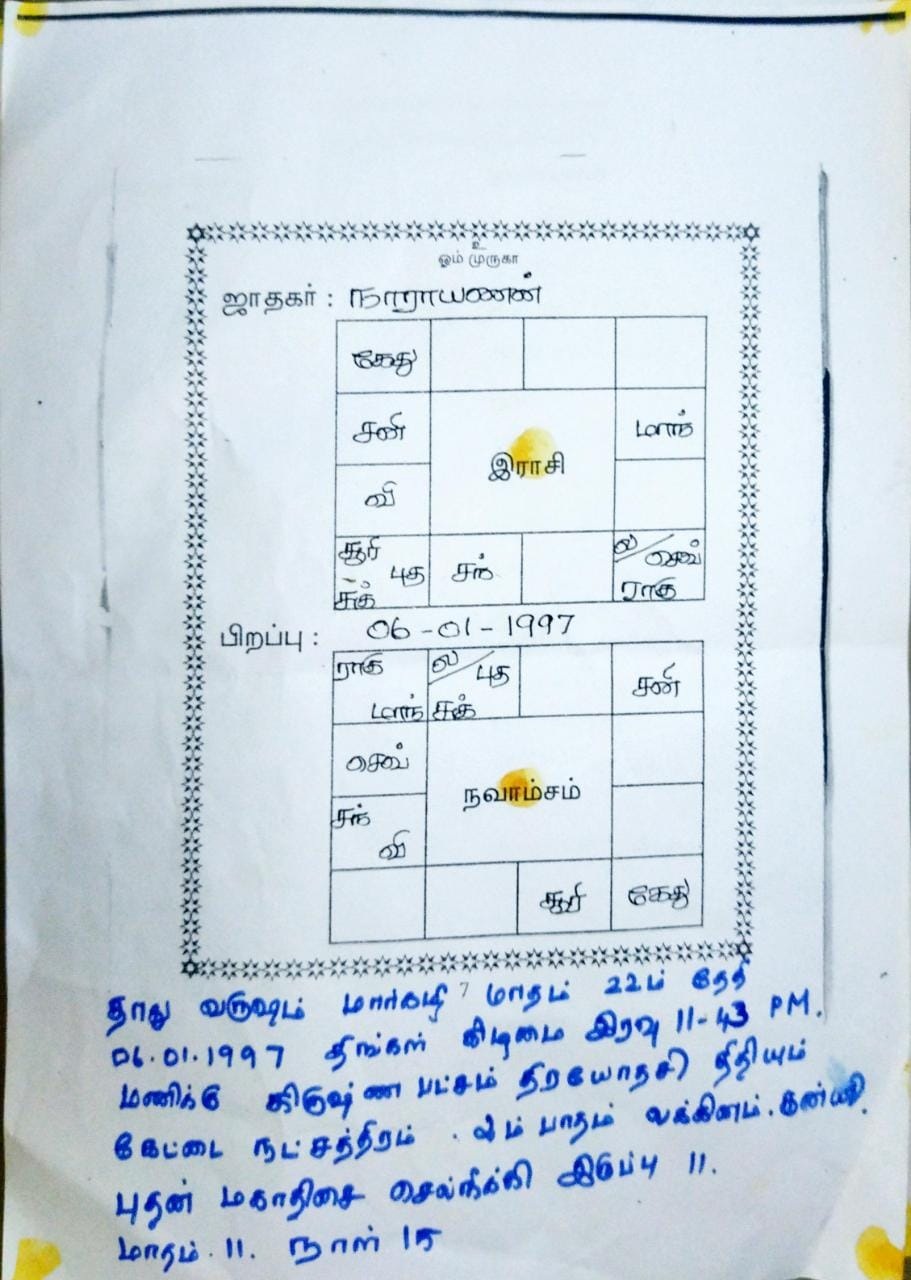 உ
ஓம் முருகா
ஜாதகர் : நாராயணன்
கேது
சனி
மாந்
இராசி
வி
சூரி
புத
சுக்
சந்
ல/செவ்
ராகு
பிறப்பு : 06-01-1997
ராகு
மாந்
ல/புத
சுக்
சனி
செவ்
நவாம்சம்
சந்
வி
சூரி
கேது
தாது வருஷம் மார்கழி மாதம் 22ம் தேதி
06.01.1997 திங்கள் கிழமை இரவு 11-43 PM.
மணிக்கு கிருஷ்ண பட்சம் திரயோதசி திதியும்
கேட்டை நட்சத்திரம். பாதம் லக்கினம். கன்னி.
புதன் மகாதிசை செல்நீக்கி இருப்பு 11.
மாதம். 11. நாள் 15